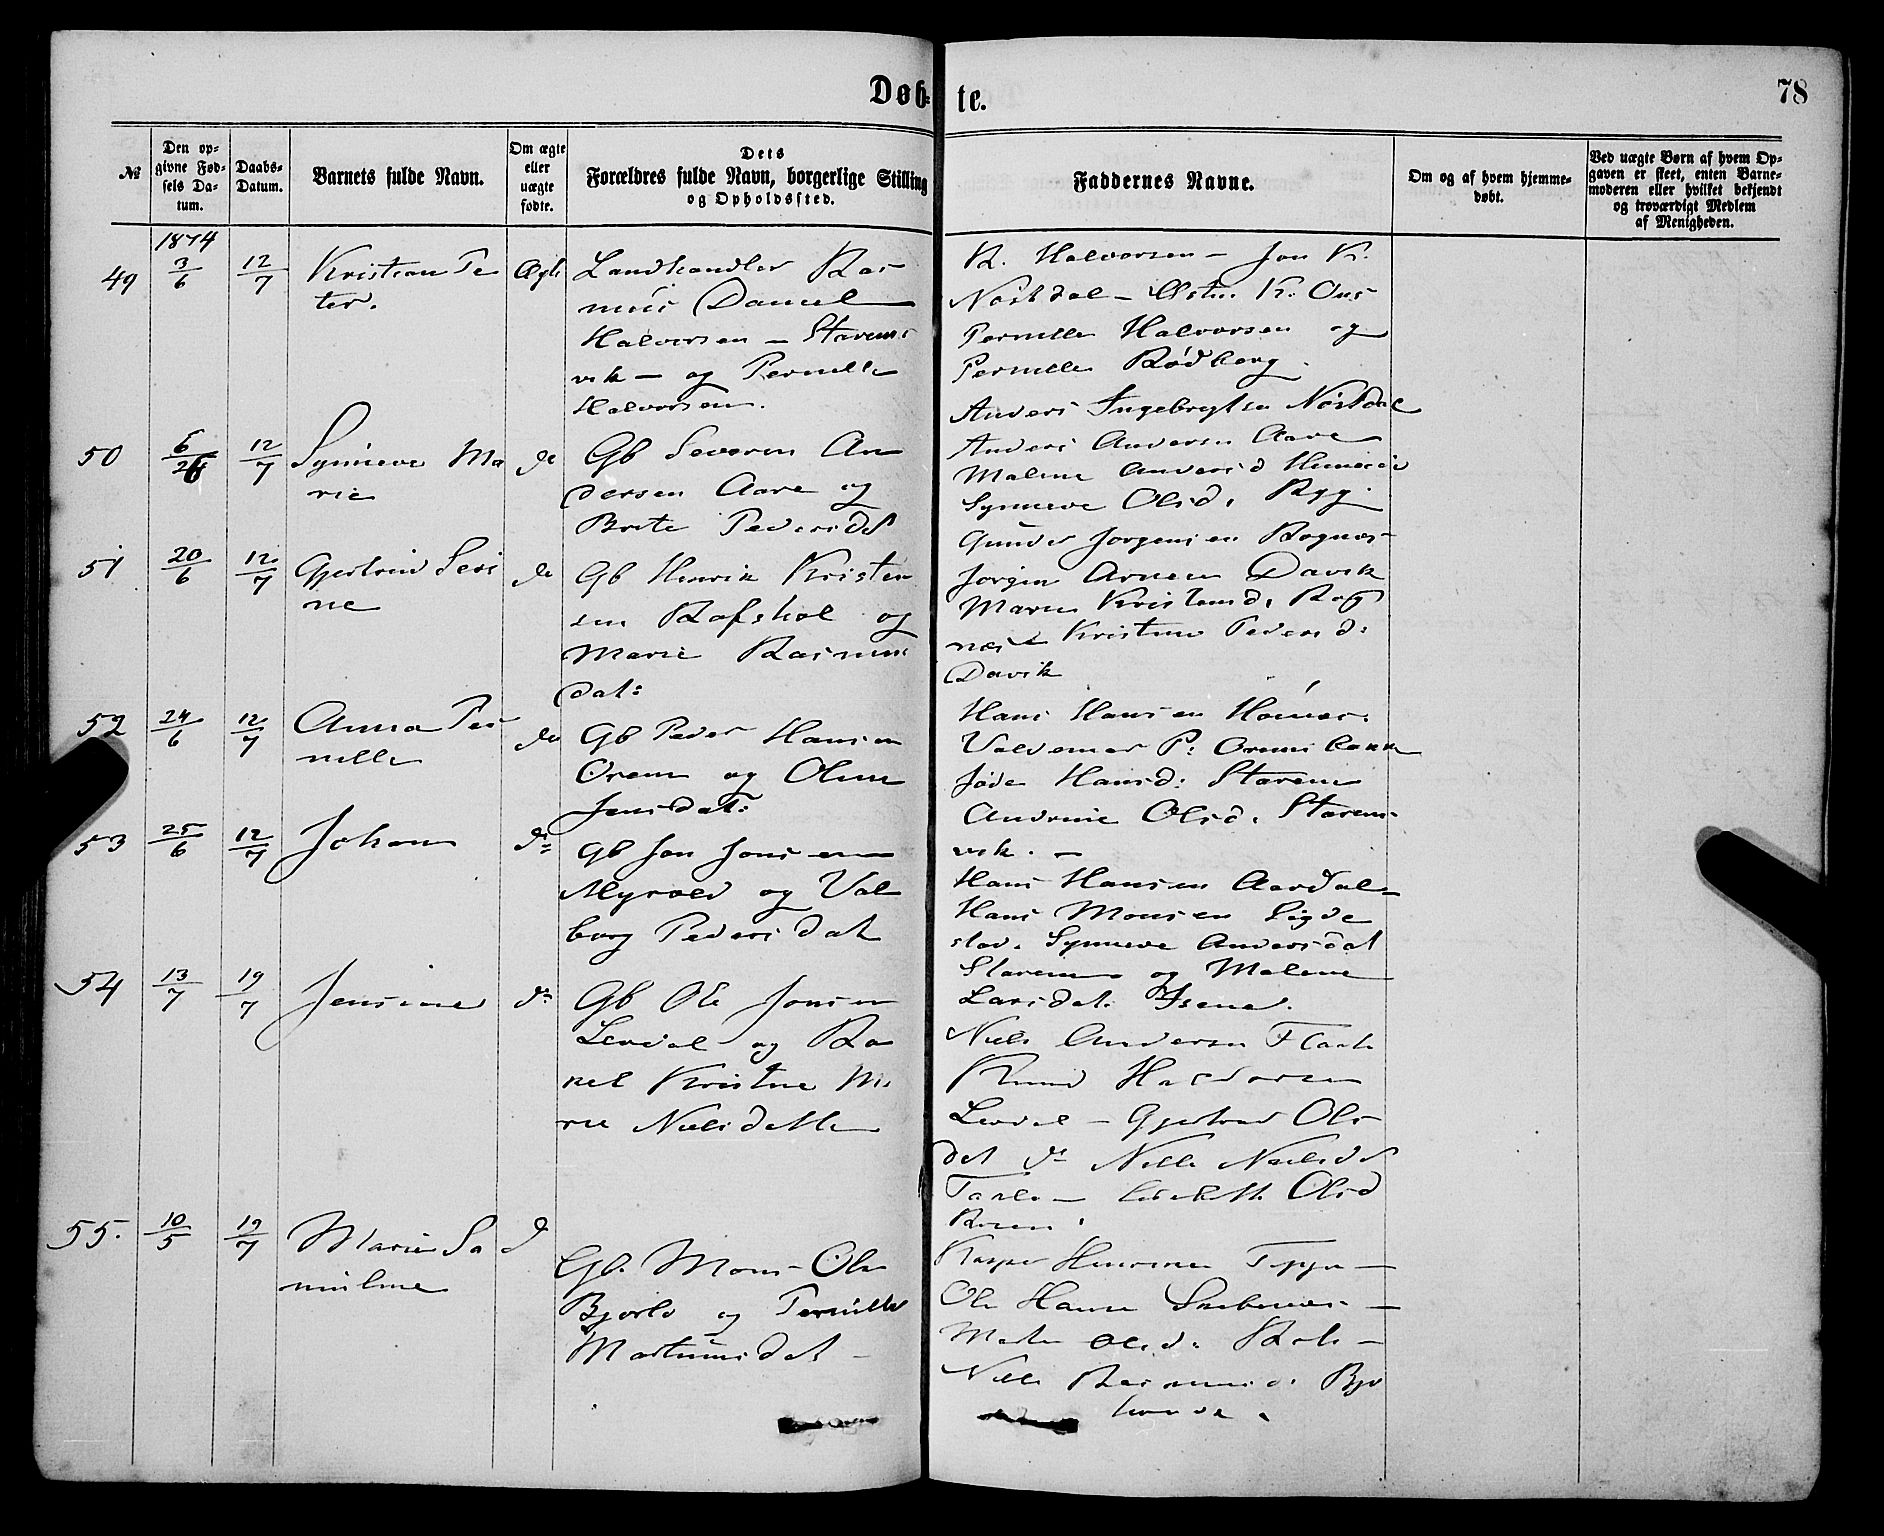 Døb-
te.
78
№
Den op-
givne Fød-
sels Da-
tum.
Daabs-
Datum.
Barnets fulde Navn.
Om ægte
eller
uægte
fødte.
Dets
Forældres fulde Navn, borgerlige Stilling
og Opholdssted.
Faddernes Navne.
Om og af hvem hjemme-
døbt.
Ved uægte Børn af hvem Op-
gaven er skeet, enten Barne-
moderen eller hvilket bekjendt
og troværdigt Medlem
af Menigheden.
1874
49 3/6 12/7 Kristian Pe
ter.
Ægte
Landhandler Ras
mus Daniel
Halvorsen – Stavens
vik – og Pernille
Halvorsen.
R. Halvorsen – Jon R.
Nøstdal – R.
Pernille Halvorsen og
Pernille Rødberg.
50 12/7 Synneve Ma
rie
do
Gb Severin An
dersen Aare og
Brite Pedersdt
Anders Ingebrigtsen Nøstdal
Anders Andersen Aare
Malene Andersd
Synneve Olsd. Ryg.
51 20/6 12/7 Gjertrud Seri
ne
do
Gb Henrik Kristen
sen Refshol og
Marie Rasmus
dat:
Gunder Jørgensen Rognes
Jørgen Davik
Maren Kristensd. Rog
nes Kristine Pedersd:
Davik
52 24/6 12/7 Anna Per
nille
do
Gb Peder Hansen
Orem og Oline
Jensdat:
Hans Hansen
Valdemar P:
Hansd: Starem
Andrine Olsd. Starem-
vik. –
53 25/6 12/7 Johan
do
Gb Jon Jonsen
Myrold og Val
borg Pedersdat
Hans Hansen Aardal –
Hans Monsen Eigde
stad. Synneve Andersdat
Starem og Malene
Larsdat. Isene.
54 13/7 19/7 Jensine
do
Gb Ole Jonsen
Levdal og Ra
kel Kristine Ma
rie Nielsdatter
Niels Andersen
Knud Haldorsen
Levdal – Gjertrud Ols
dat do Nille Nielsdt
Olsd
55. 10/5 19/7 Marie Sa
muline
d
Gb. Mons Ols
Bjørlo og Pernille
Martinusdat –
Kasper
Ole Hansen
Olsd.
Nille Rasmusd. Bjø